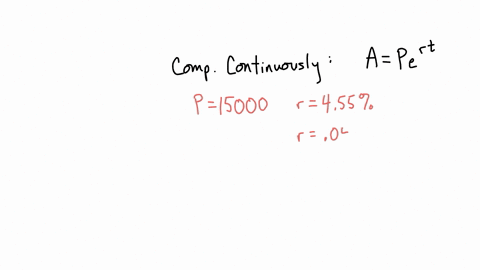 Comp. Continuously: A = Pe^{rt}
P = 15000 r = 4.55%
r = .0